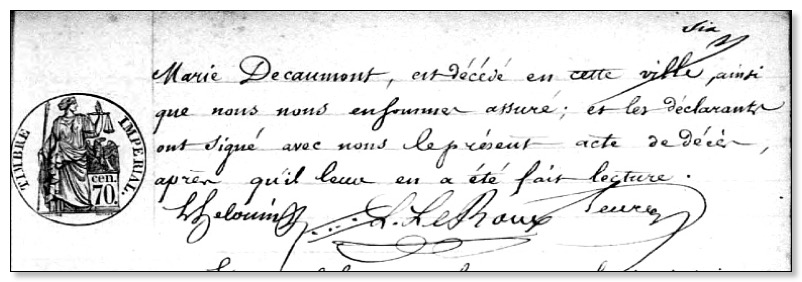 six
Marie Decaumont, est décédé en cette ville, ainsi
que nous nous en sommes assuré ; et les déclarants
ont signé avec nous le présent acte de décès,
après qu'il leur en a été fait lecture.
TIMBRE IMPÉRIAL.
cen.
70.
L. Le Roux